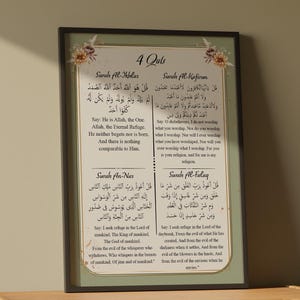 4 Quls
Surah Al-Ikhlas
قُلْ هُوَ اللَّهُ أَحَدٌ اللَّهُ الصَّمَدُ
لَمْ يَلِدْ وَلَمْ يُولَدْ وَلَمْ يَكُن لَّهُ
كُفُوًا أَحَدٌ
Say: He is Allah, the One
Allah, the Eternal Refuge.
He neither begets nor is born.
And there is nothing
comparable to Him.
Surah Al-Kafirun
Say: O disbelievers, I do not worship
what you worship. Nor do you worship
what I worship. Nor will I ever worship
what you worship. Nor will you ever
worship what I worship. For you is
your religion, and for me is my
religion.
Surah An-Nas
قُلْ أَعُوذُ بِرَبِّ النَّاسِ مَلِكِ النَّاسِ
إِلَٰهِ النَّاسِ مِن شَرِّ الْوَسْوَاسِ
الْخَنَّاسِ الَّذِي يُوَسْوِسُ فِي صُدُورِ
النَّاسِ مِنَ الْجِنَّةِ وَالنَّاسِ
Say: I seek refuge in the Lord of
mankind, The King of mankind,
The God of mankind.
From the evil of the whisperer who
withdraws, Who whispers in the breasts
of mankind, Of jinn and of mankind."
Surah Al-Falaq
Say: I seek refuge in the Lord of the
daybreak, From the evil of what He has
created, And from the evil of the
darkness when it settles, And from the
evil of the blowers in the knots, And
from the evil of the envier when he
envies."